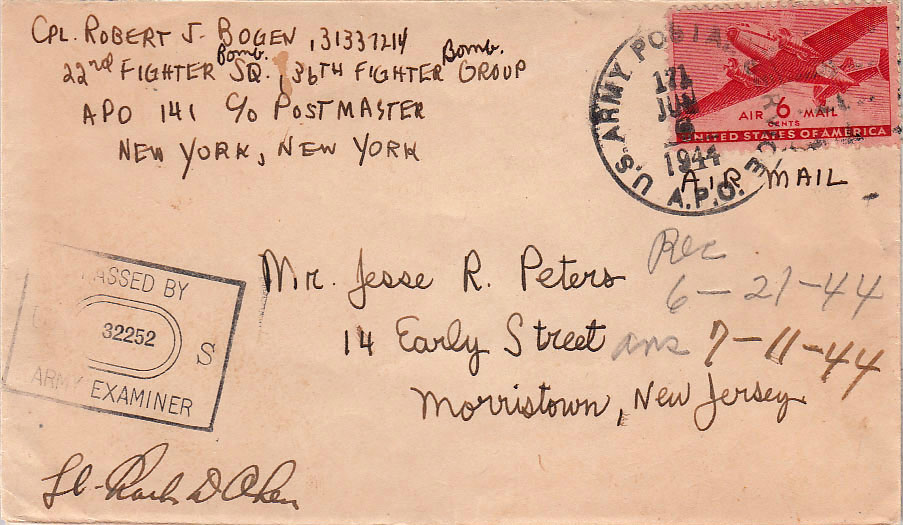 CPL. ROBERT J. BOGEN, 31337214
22nd FIGHTER Bomb. SQ., 36TH FIGHTER Bomb. GROUP
APO 141 C/O POSTMASTER
NEW YORK, NEW YORK
U.S. ARMY POSTAL
171
JUN
1944
A.P.O.
AIR 6 MAIL
CENTS
UNITED STATES OF AMERICA
AIR MAIL
Mr. Jesse R. Peters
14 Early Street
Morristown, New Jersey
Rec.
6-21-44
ans 7-11-44
PASSED BY
32252
S
ARMY EXAMINER
Lt.